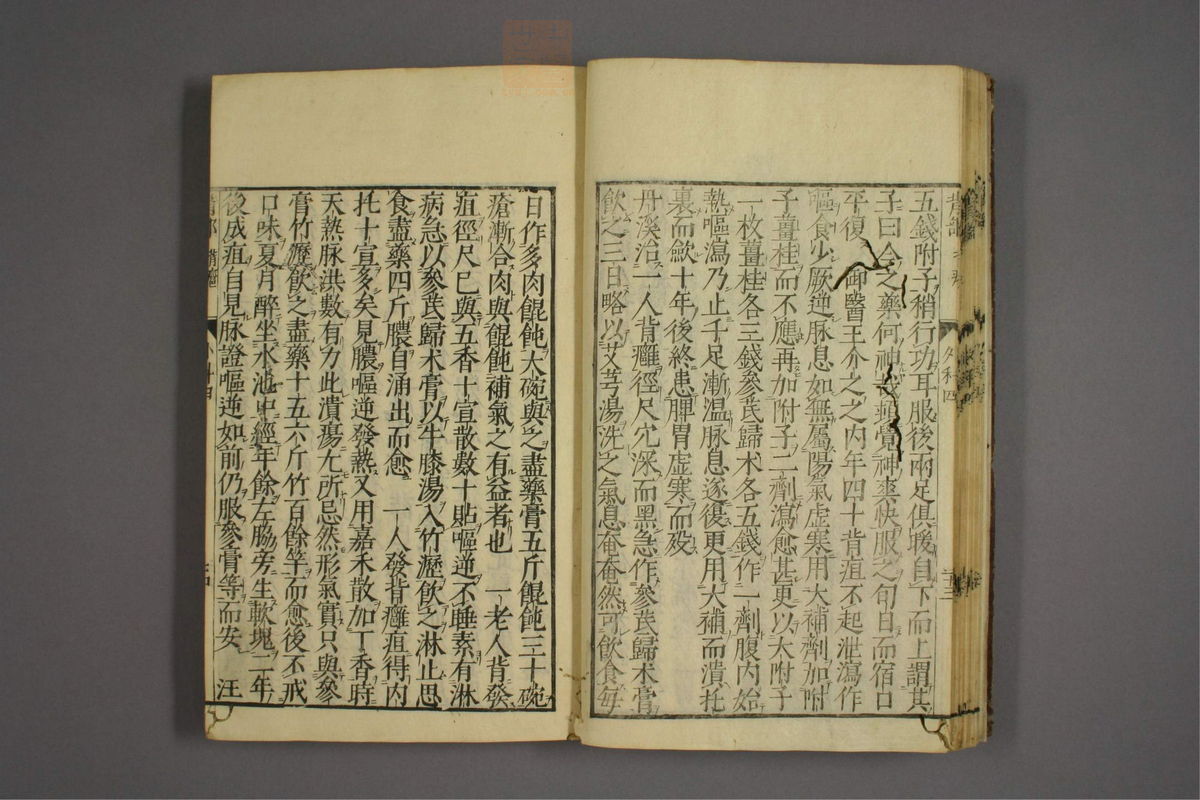 五錢附子稍行功耳服後兩足俱暖自下而上謂其
子曰今之藥何神也頓覺神爽快服之旬日而宿口
平復 御醫王介之之内年四十背疽不起泄瀉作
嘔食少厥逆脉息如無屬陽氣虚寒用大補劑加附
子薑桂而不應再加附子二劑瀉愈甚更以大附子
一枚薑桂各三錢參芪歸术各五錢作一劑腹内始
熱嘔瀉乃止手足漸温脉息遂復更用大補而潰托
裏而歛十年後終患脾胃虚寒而殁
丹溪治一人背癰徑尺穴深而黑急作參芪歸术膏
飲之三日略以艾芎湯洗之氣息奄奄然可飲食毎
日作多肉餛飩大碗與之盡藥膏五斤餛飩三十碗
瘡漸合肉與餛飩補氣之有益者也 一老人背發
疽徑尺已與五香十宣散數十貼嘔逆不睡素有淋
病急以參芪歸术膏以牛膝湯入竹瀝飲之淋止思
食盡藥四斤膿自涌出而愈 一人發背癰疽得内
托十宣多矣見膿嘔逆發熱又用嘉禾散加丁香時
天熱脉洪數有力此潰瘍尤所忌然形氣實只與參
膏竹瀝飲之盡藥十五六斤竹百餘竿而愈後不戒
口味夏月醉坐水池中經年餘左脇旁生軟塊二年
後成疽自見脉證嘔逆如前仍服參膏等而安 汪